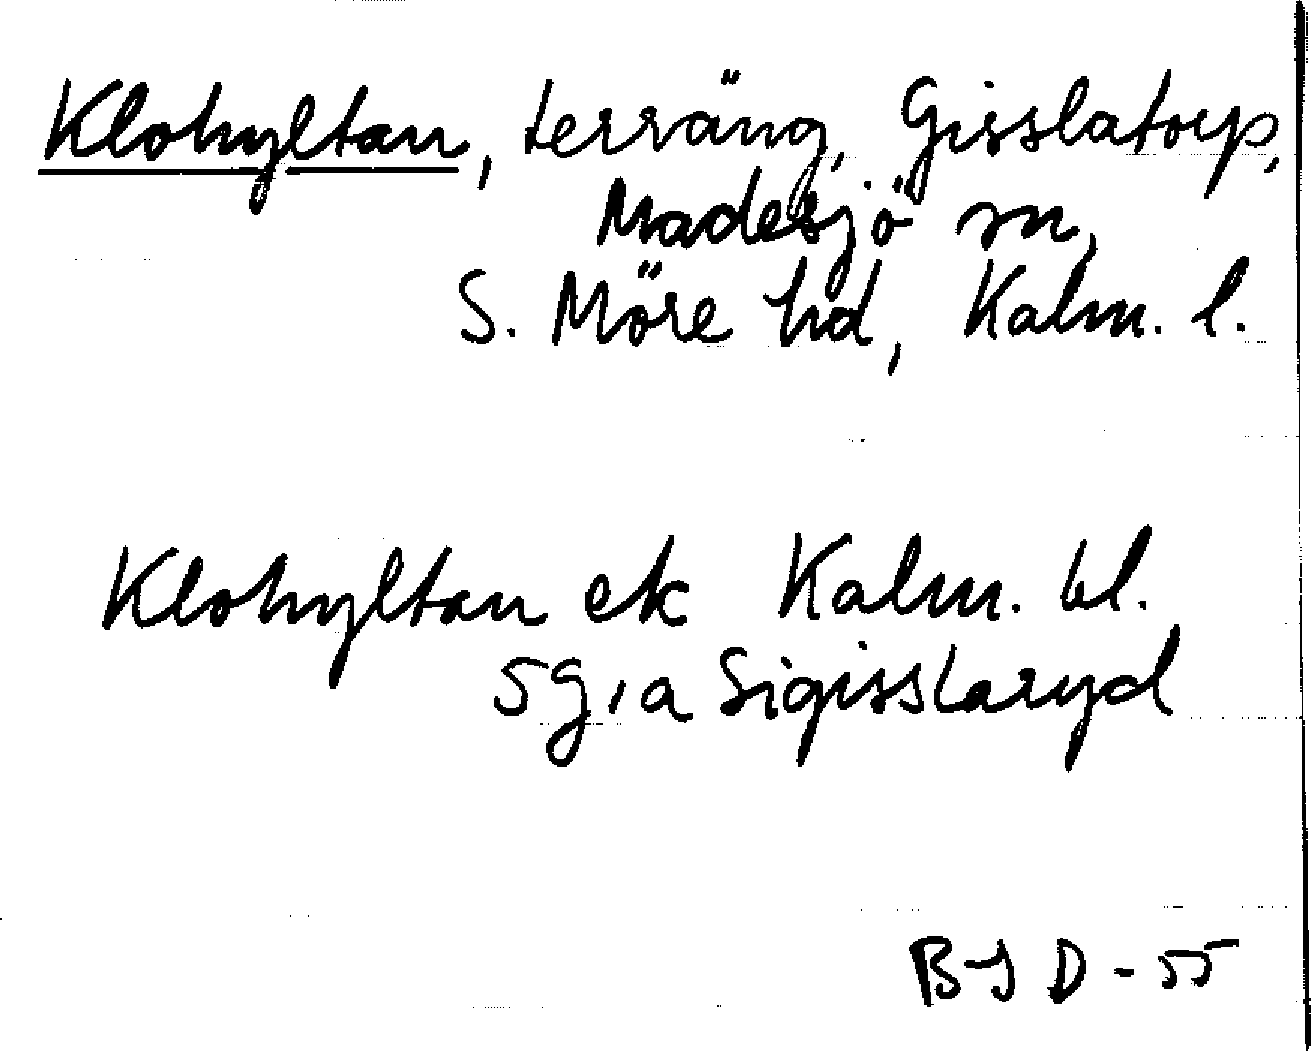 Klohyltan, terräng, Gisslatorp,
Madesjö sn,
S. Möre hd, Kalm. l.
Klohyltan ek Kalm. bl.
5g, a Sigisslaryd
BJD-55